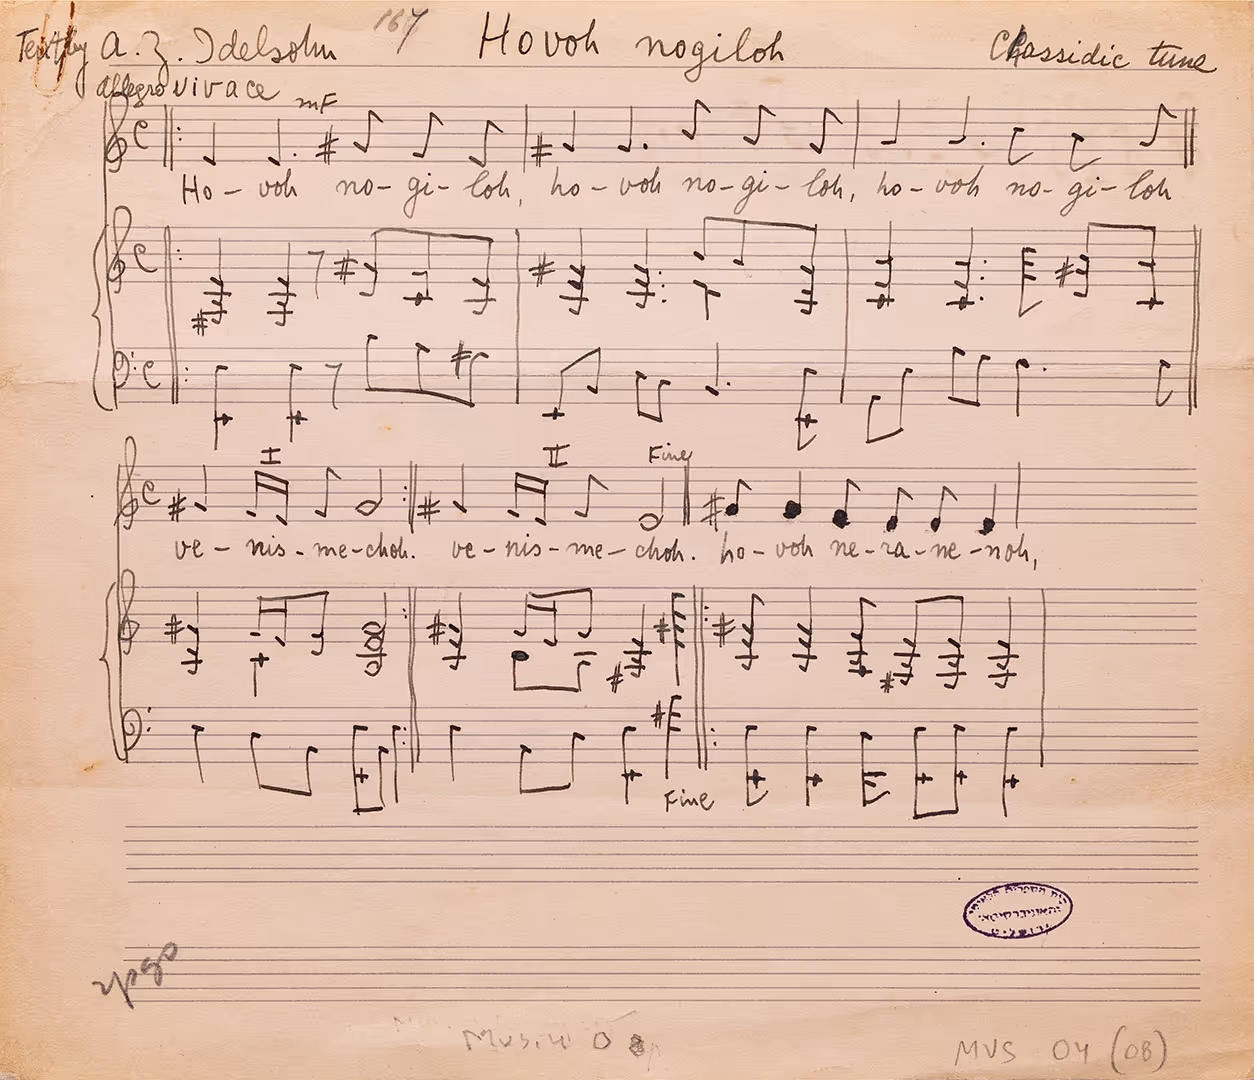 167
Text by A. Z. Idelsohn Hovoh nogiloh Chassidic tune
Allegro vivace mF
Ho - voh no - gi - loh, ho - voh no - gi - loh, ho - voh no - gi - loh
I II Fine
ve - nis - me - choh. ve - nis - me - choh. ho - voh ne - ra - ne - noh,
Fine
MUS 04 (08)